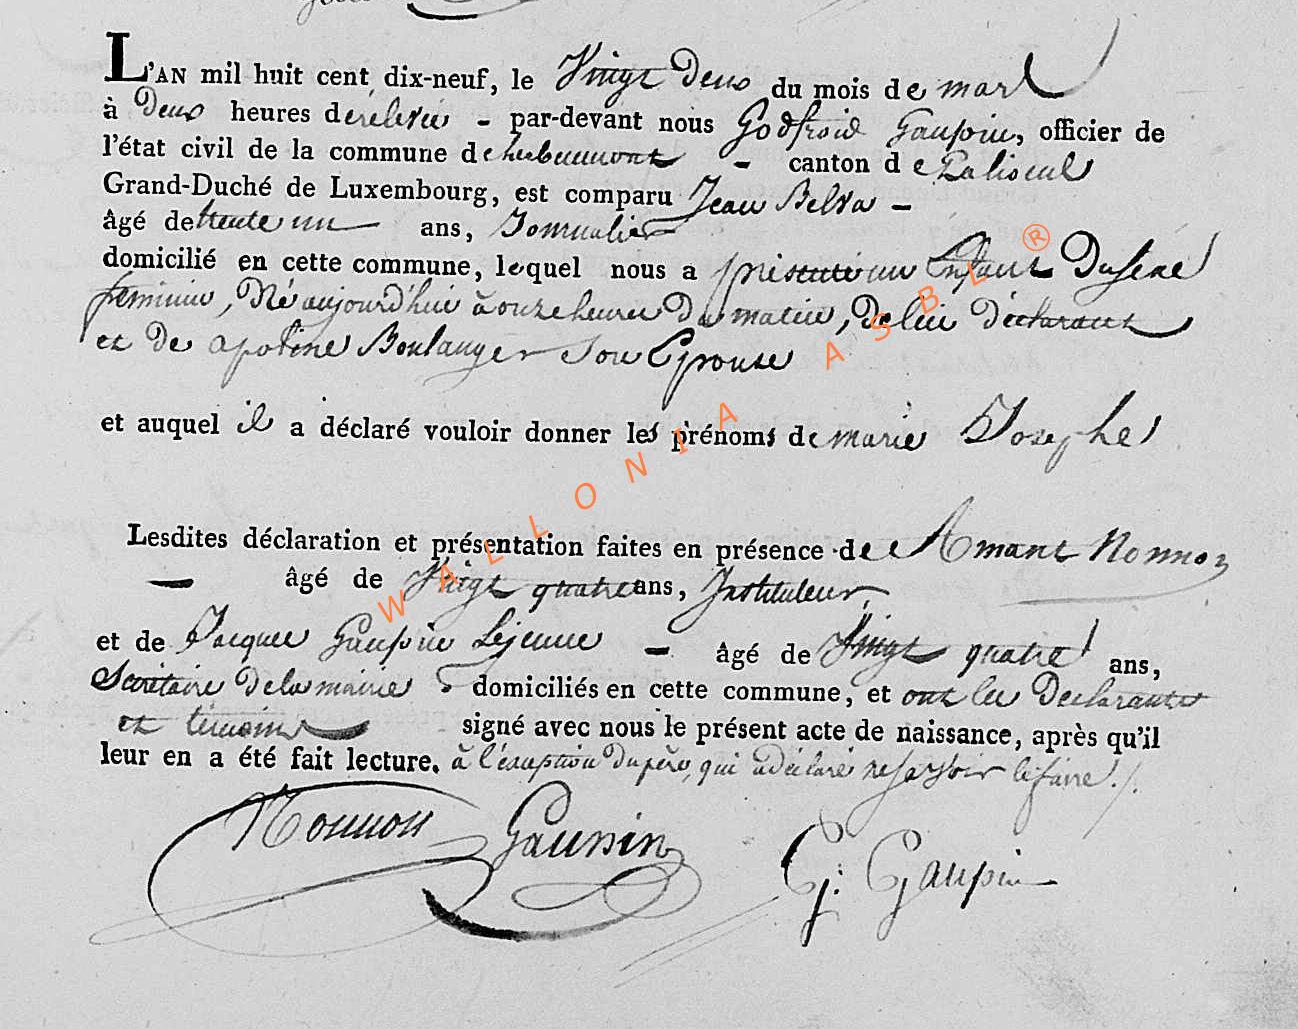 L'AN mil huit cent dix-neuf, le Vingt Deux du mois de mars
à Deux heures de relevée - par-devant nous Godfroid Gaupin, officier de
l'état civil de la commune de herbeumont - canton de Paliseul
Grand-Duché de Luxembourg, est comparu Jean Belva -
âgé de trente un ans, Journalier
domicilié en cette commune, lequel nous a présenté un Enfant Du sexe
feminin, Né aujourd'hui à onze heures Du matin, De lui Déclarant
et De apoline Boulanger Son Epouse
et auquel il a déclaré vouloir donner les prénoms de marie Josephe
Lesdites déclaration et présentation faites en présence de Amant Nonnon
- âgé de Vingt quatre ans, Instituteur,
et de Jacques Gaupin Lejeune - âgé de Vingt quatre ans,
Secrétaire De la mairie domiciliés en cette commune, et ont les Déclarants
et témoins signé avec nous le présent acte de naissance, après qu'il
leur en a été fait lecture. à l'exception Du père, qui a déclaré ne savoir le faire ./.
Nonnon Gaupin G: Gaupin
WALLONIA ASBL ®